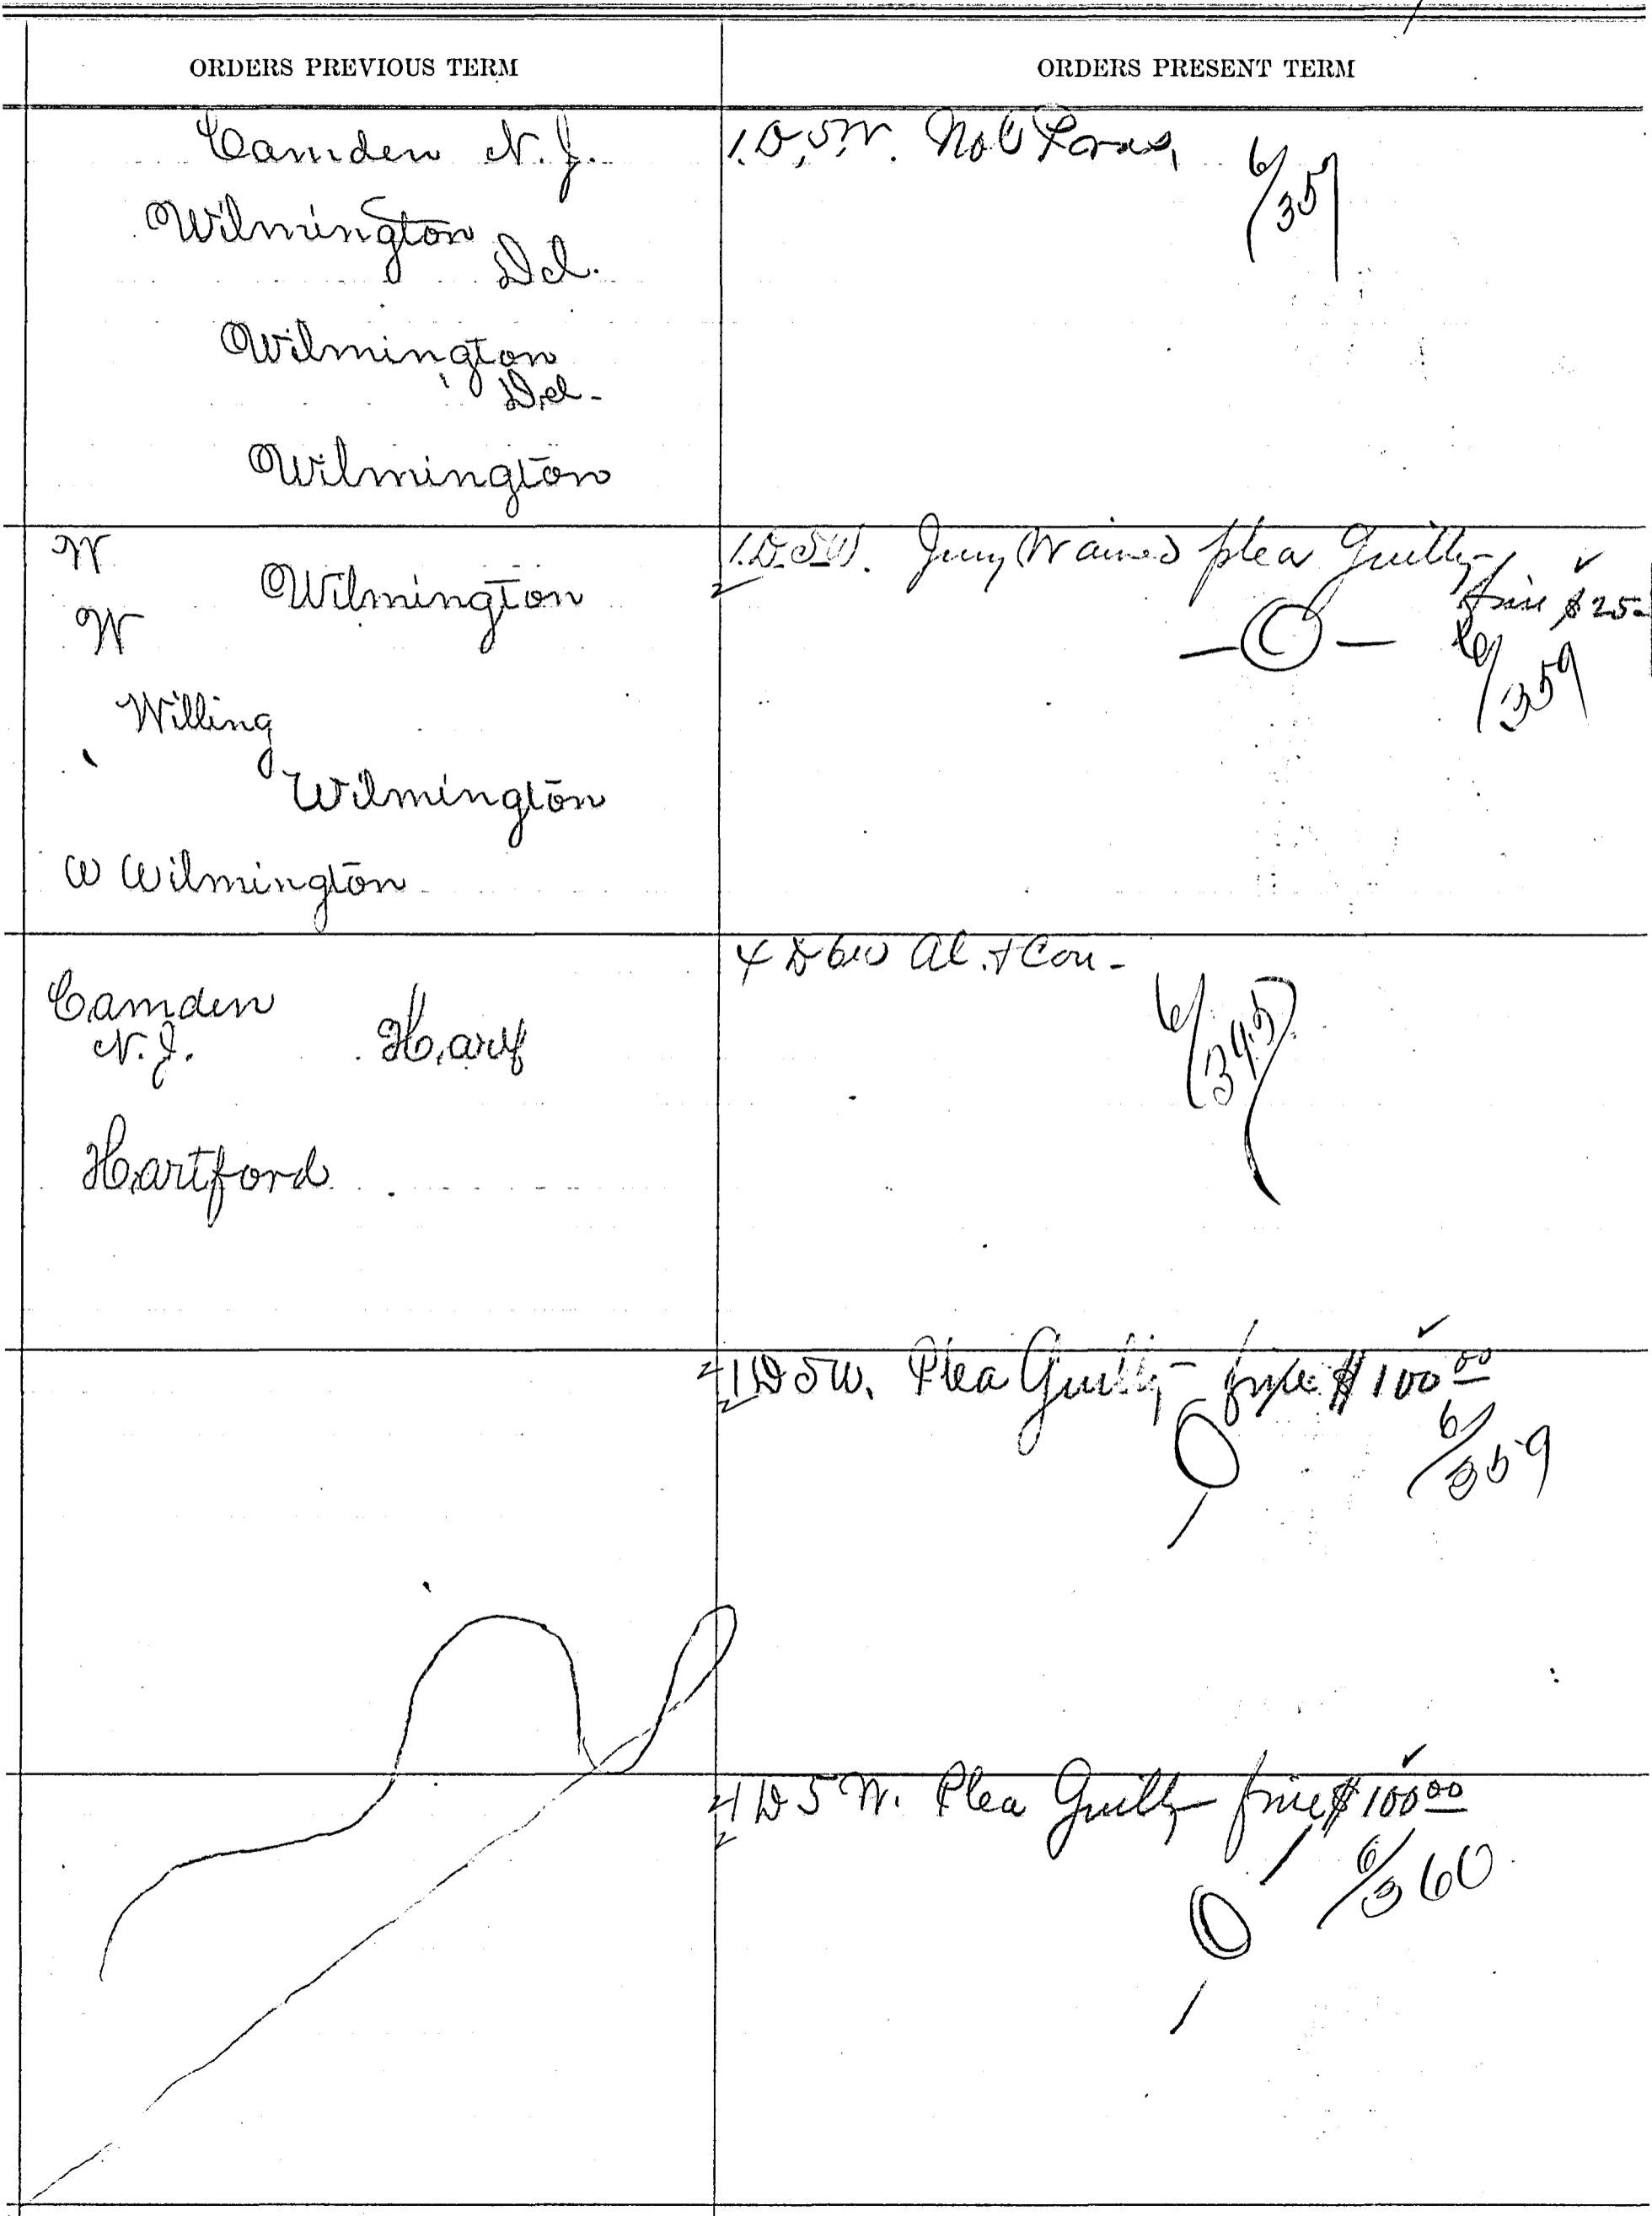 ORDERS PREVIOUS TERM
ORDERS PRESENT TERM
Camden N. J.
Wilmington
Del.
Wilmington
Del.
Wilmington
1. D. 5. W. Nol Pros.
6/357
W
Wilmington
W
Willing
Wilmington
W Wilmington
1. D. 5 W. Jury Waived plea Guilty
fine $25
6/359
Camden
N. J. Hart
Hartford
4 D 6 W Al. + Con-
6/395
1 D 5 W. Plea Guilty - fine $100 00
6/359
1 D 5 W. Plea Guilty fine $100 00
6/360